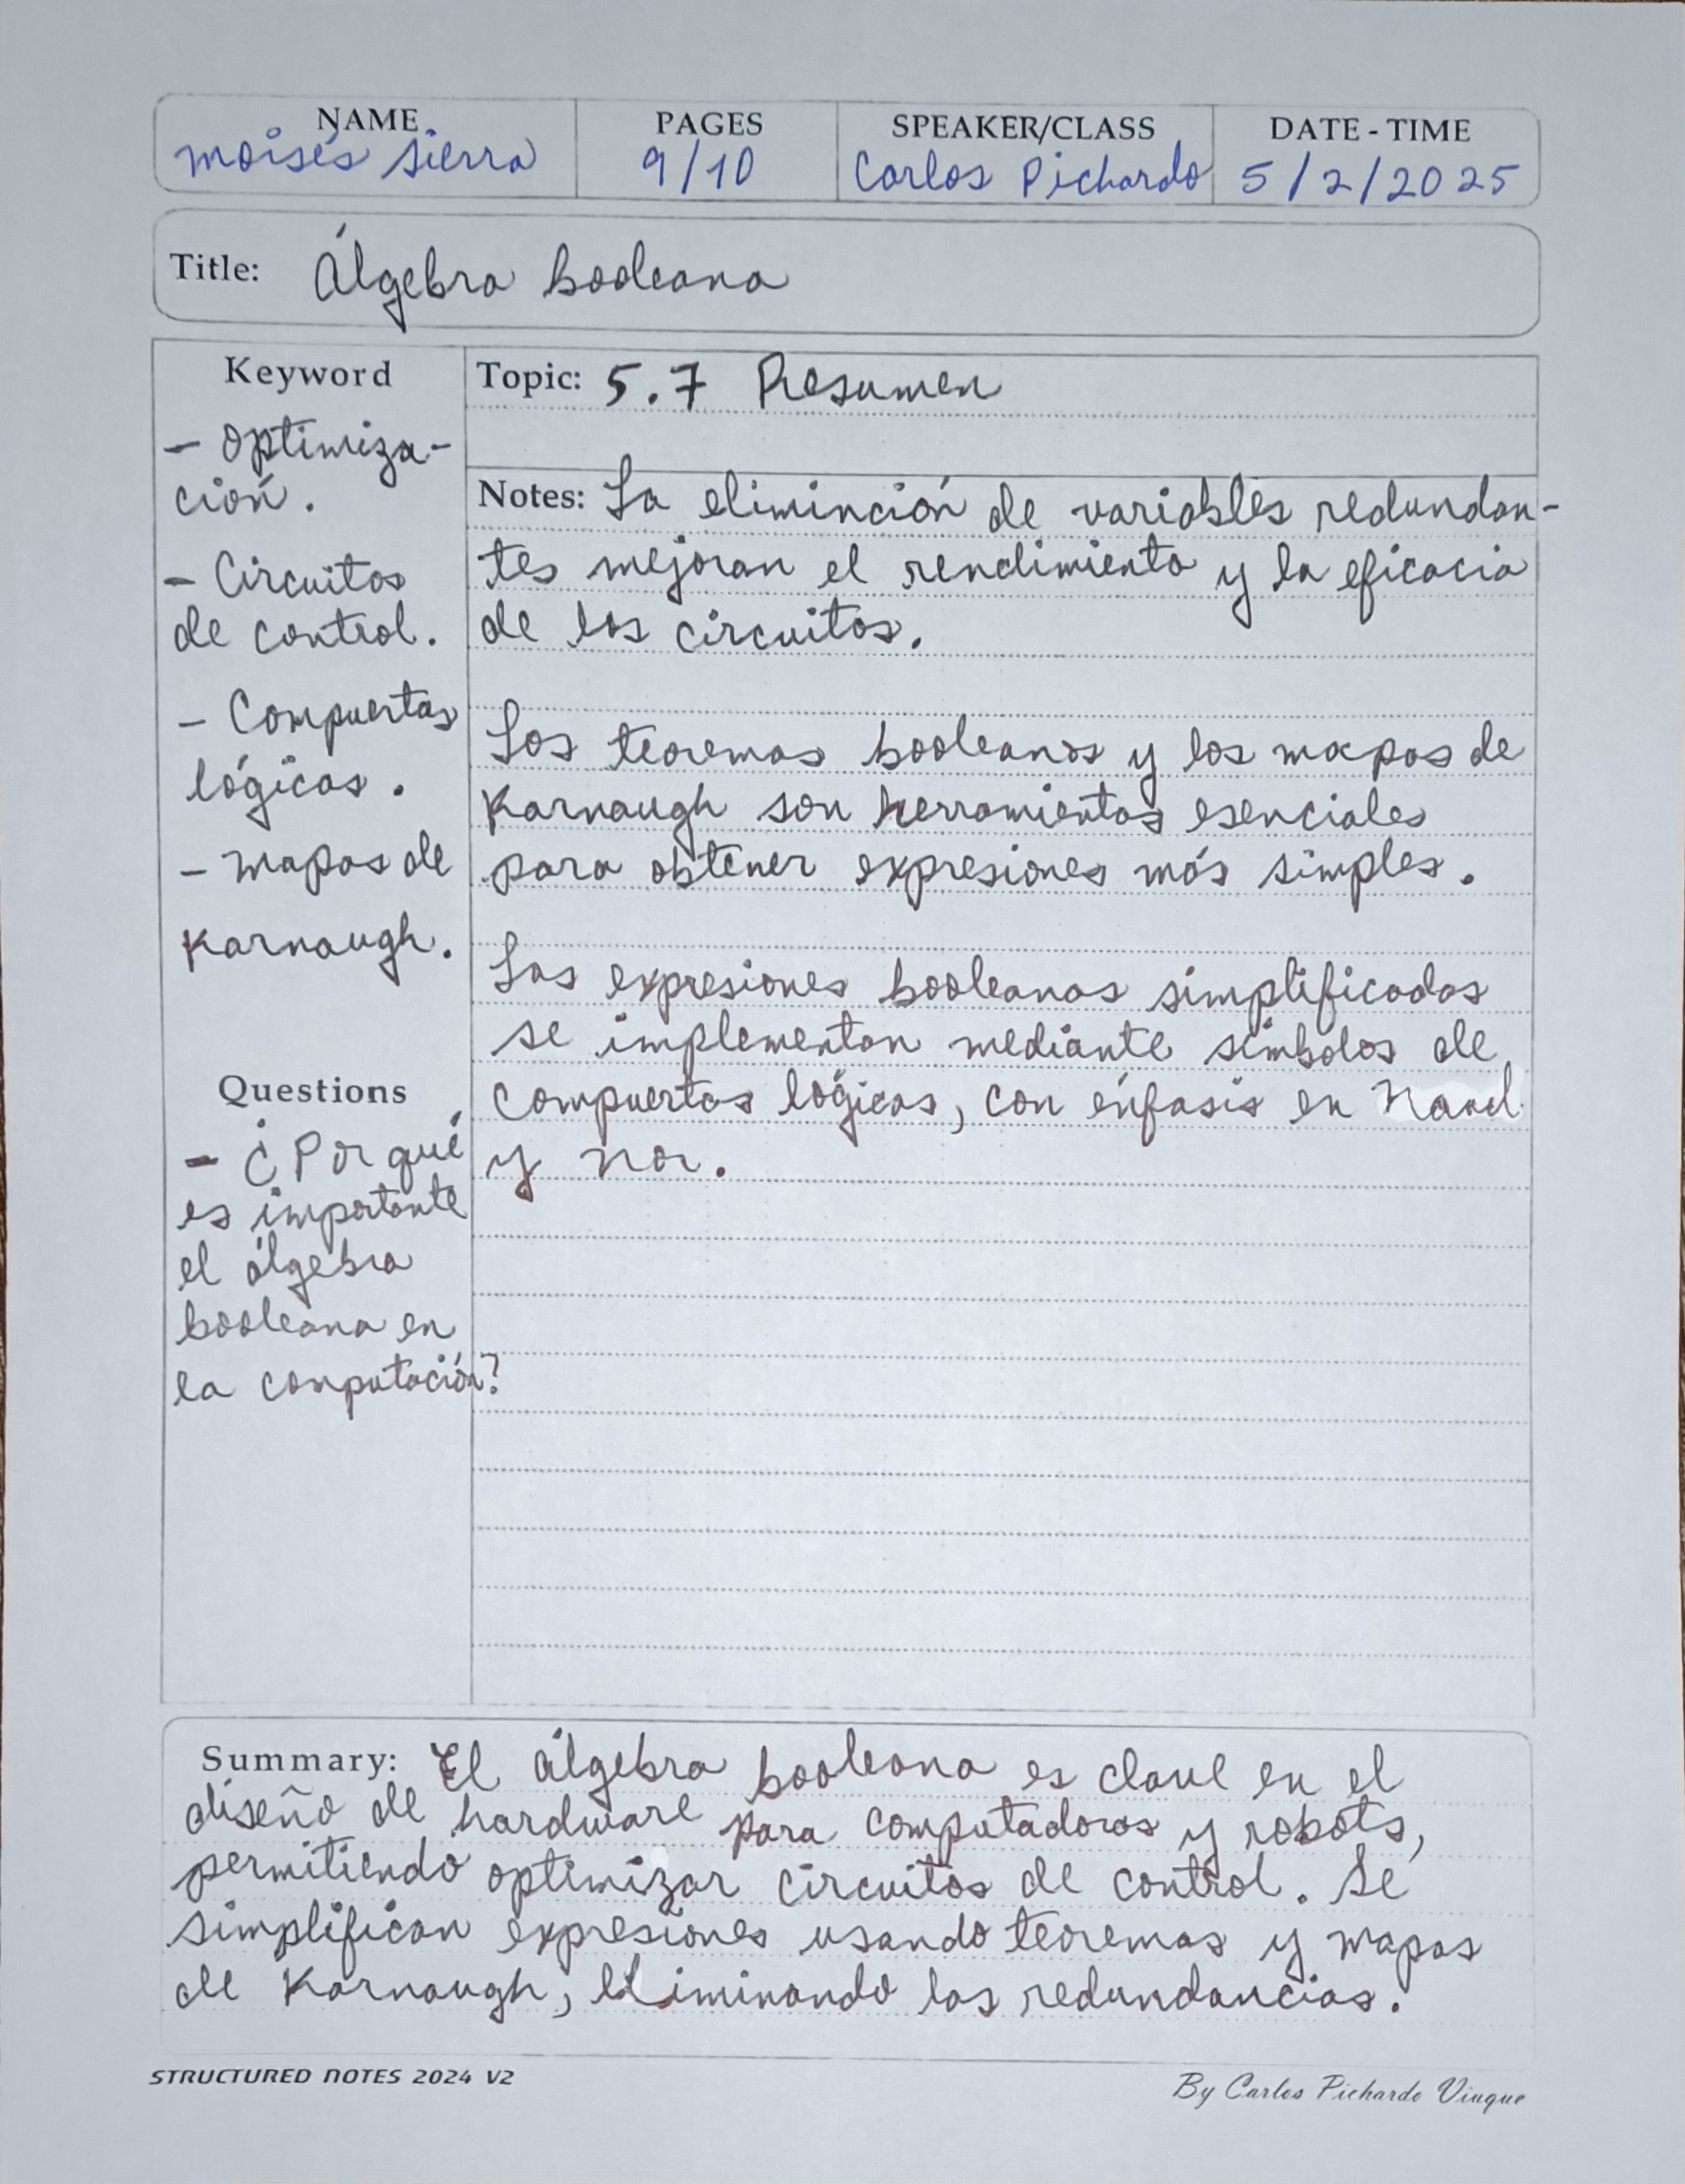 NAME PAGES SPEAKER/CLASS DATE - TIME
Moisés Sierra 9/10 Carlos Pichardo 5/2/2025
Title: Álgebra booleana
Keyword
- Optimiza-
ción.
- Circuitos
de control.
- Compuertas
lógicas.
- Mapas de
Karnaugh.
Questions
- ¿Por qué
es importante
el álgebra
booleana en
la computación?
Topic: 5.7 Resumen
Notes: La eliminción de variables redundan-
tes mejoran el rendimiento y la eficacia
de los circuitos.
Los teoremas booleanos y los mapas de
Karnaugh son herramientas esenciales
para obtener expresiones más simples.
Las expresiones booleanas simplificadas
se implementan mediante símbolos de
compuertas lógicas, con énfasis en Nand
y Nor.
Summary: El álgebra booleana es clave en el
diseño de hardware para computadoras y robots,
permitiendo optimizar circuitos de control. Se
simplifican expresiones usando teoremas y mapas
de Karnaugh, eliminando las redundancias.
STRUCTURED NOTES 2024 V2
By Carlos Pichardo Viuque